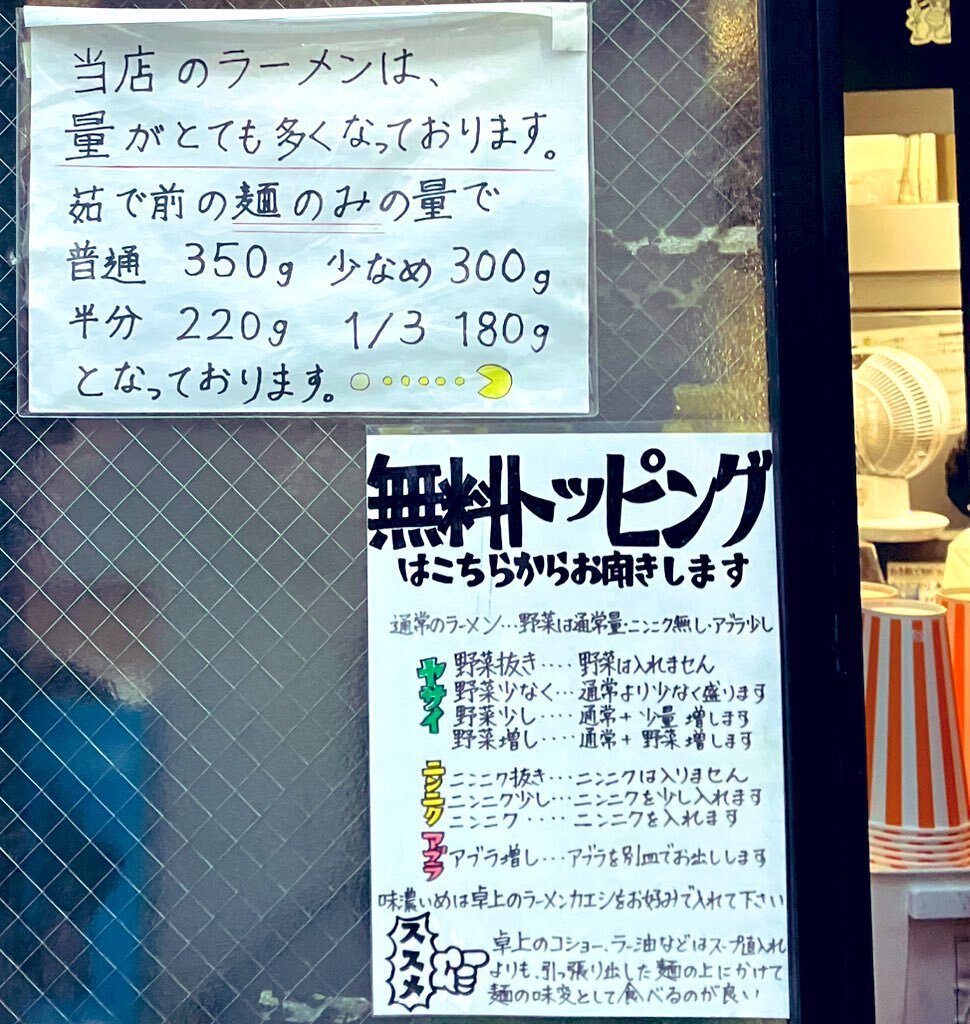 当店のラーメンは、
量がとても多くなっております。
茹で前の麺のみの量で
普通 350g 少なめ 300g
半分 220g 1/3 180g
となっております。
無料トッピング
はこちらからお聞きします
通常のラーメン…野菜は通常量・ニンニク無し・アブラ少し
ヤサイ
野菜抜き‥‥野菜は入れません
野菜少なく…通常より少なく盛ります
野菜少し‥‥通常+少量増します
野菜増し‥‥通常+野菜増します
ニンニク
ニンニク抜き…ニンニクは入りません
ニンニク少し…ニンニクを少し入れます
ニンニク‥‥ニンニクを入れます
アブラ
アブラ増し…アブラを別皿でお出しします
味濃いめは卓上のラーメンカエシをお好みで入れて下さい
ススメ
卓上のコショー、ラー油などはスープ直入れ
よりも、引っ張り出した麺の上にかけて
麺の味変として食べるのが良い